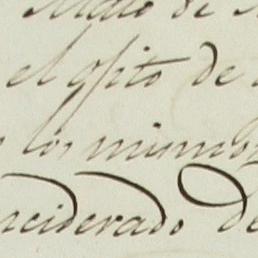 de
el opito de
los mismos
nciderado de